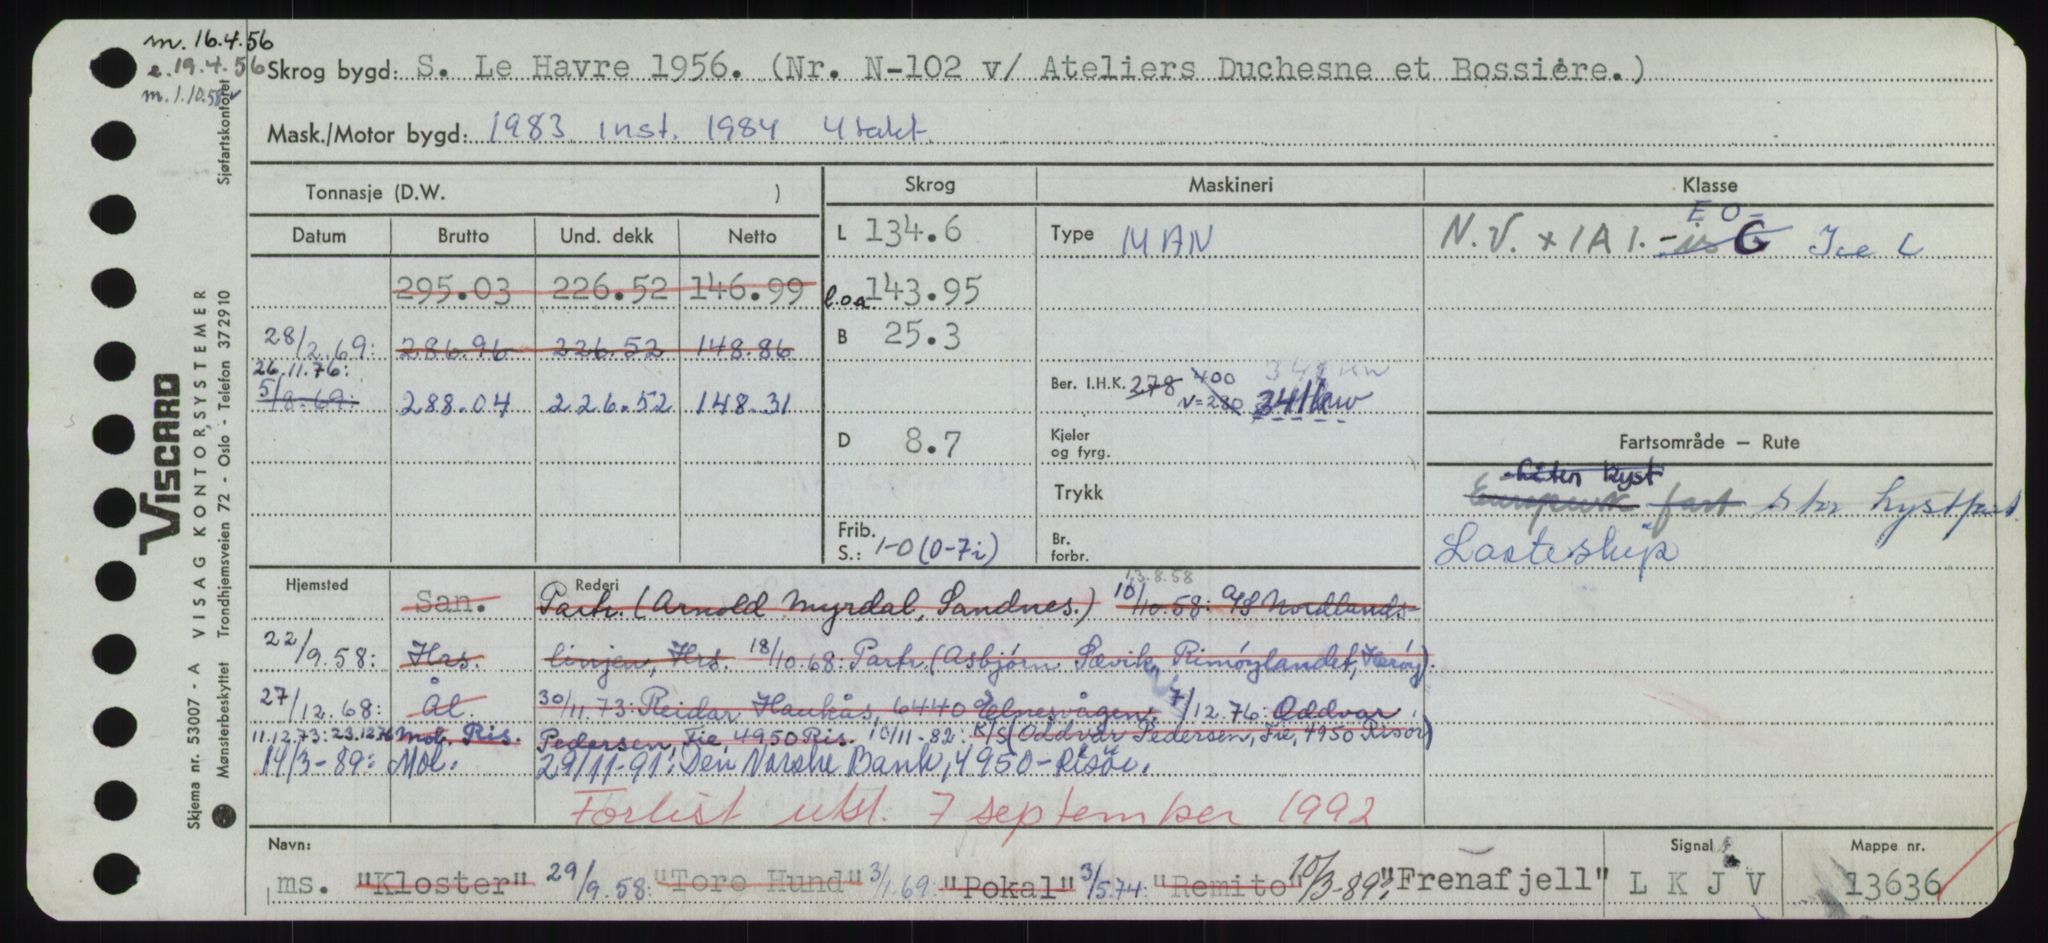 m. 16.4.56
e. 19.4.56
m. 1.10.58
Skrog bygd: S. Le Havre 1956. (Nr. N-102 v/ Ateliers Duchesne et Bossière.)
Mask./Motor bygd: 1983 inst. 1984 4takt.
Tonnasje (D.W. )
Skrog
Maskineri
Klasse
Datum Brutto Und. dekk Netto
L 134.6
Type MAN
N.V. + 1A1. - is G EO- Ice C
295.03 226.52 146.99
l.o.a 143.95
28/2.69: 286.96 226.52 148.86
B 25.3
26.11.76:
5/8.69: 288.04 226.52 148.31
Ber. I.H.K. 278 400 N=280 341 kw
D 8.7
Kjeler og fyrg.
Fartsområde – Rute
Liten kyst
Europeisk fart Stor kystfart
Trykk
Frib. S.: 1-0 (0-7i)
Br. forbr.
Lasteskip
Hjemsted
Rederi
13.8.58
San. Partr. (Arnold Myrdal, Sandnes.) 10/10.58: A/S Nordlands-
22/9.58: Has. linjen, Hrs. 18/10.68: Partr. (Asbjørn Sævik, Rimøylandet, Herøy).
27/12.68: Ål. 30/11.73: Reidar Haukås, 6440 Elnesvågen. 7/12.76: Oddvar
11.12.73: 23.12.76 Mol. Ris. Pedersen, Fie, 4950 Ris. 10/11-82: K/S (Oddvar Pedersen, Fie, 4950 Risør)
14/3-89: Mol. 29/11-91: Den Norske Bank, 4950-Risør.
Forlist utsl. 7 september 1992
Navn:
Signal
Mappe nr.
ms. "Kloster" 29/9.58: "Tore Hund" 3/1.69: "Pokal" 3/5.74: "Remito" 10/3-89: "Frenafjell" LKJV 13636
Sjøfartskontoret
VISCARD
Skjema nr. 53007 - A VISAG KONTORSYSTEMER
Mønsterbeskyttet Trondhjemsveien 72 - Oslo - Telefon 372910